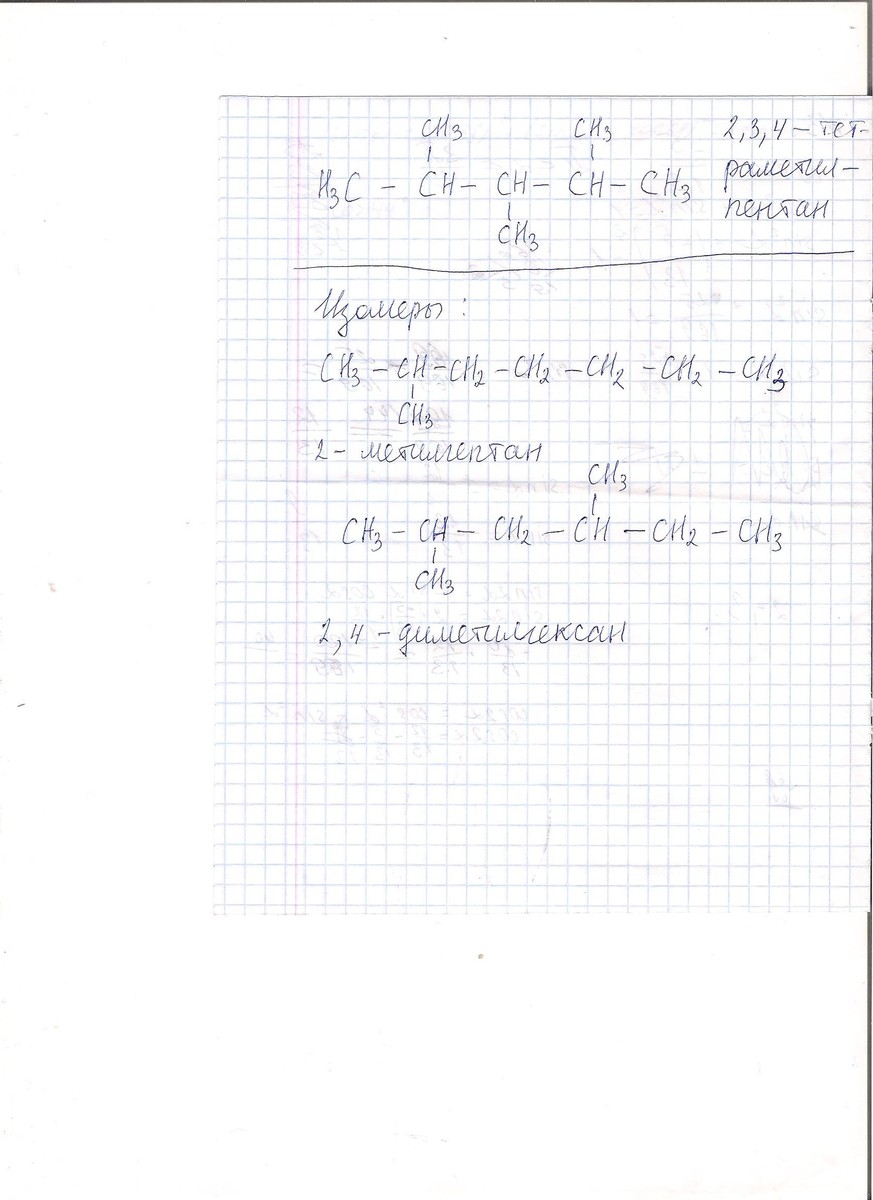 CH3 CH3 2,3,4 – тет-
H3C – CH – CH – CH – CH3 раметил-
CH3 пентан
Изомеры :
CH3 – CH – CH2 – CH2 – CH2 – CH2 – CH3
CH3
2- метилгептан
CH3
CH3 – CH – CH2 – CH – CH2 – CH3
CH3
2,4 – диметилгексан